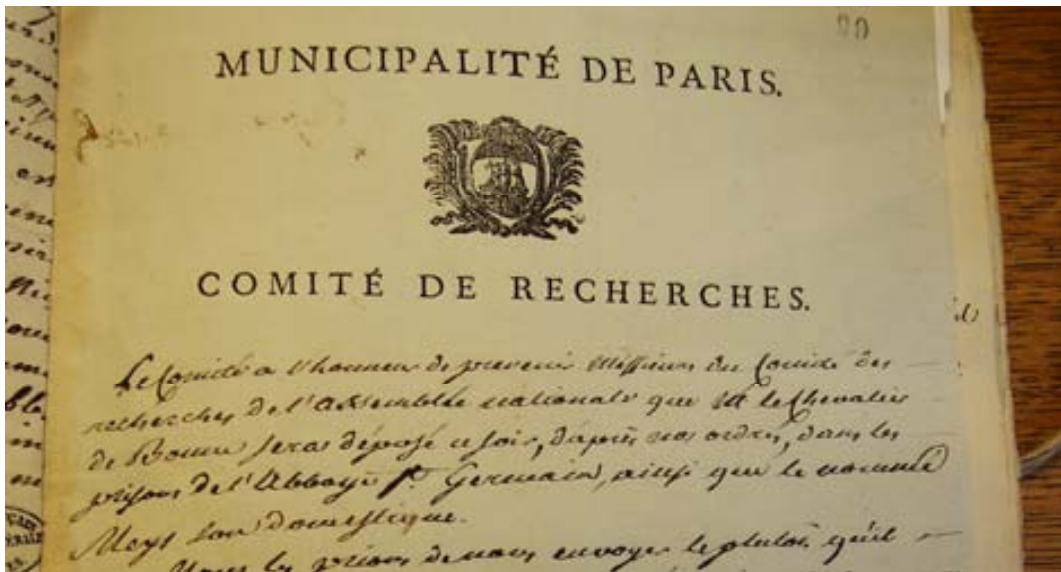 90
MUNICIPALITÉ DE PARIS.
COMITÉ DE RECHERCHES.
Le Comité a l'honneur de prevenir Messieurs du Comité des
recherches de l'Assemblée nationale que M. le Chevalier
de Bonne sera déposé ce soir, d'après nos ordres, dans les
prisons de l'Abbaye St. Germain, ainsi que le nommé
son domestique.
Nous les prions de nous envoyer le plutôt qu'il